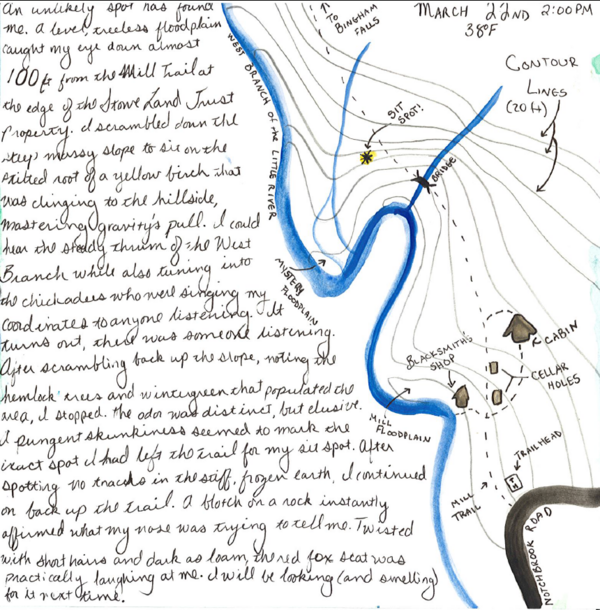 An unlikely spot has found
me. A level, treeless floodplain
caught my eye down almost
100ft from the Mill Trail at
the edge of the Stowe Land Trust
Property. I scrambled down the
steep mossy slope to sit on the
stilted root of a yellow birch that
was clinging to the hillside,
mastering gravity's pull. I could
hear the steady thrum of the West
Branch while also tuning into
the chickadees who were singing my
coordinates to anyone listening. It
turns out, there was someone listening.
After scrambling back up the slope, noting the
hemlock trees and wintergreen that populated the
area, I stopped. The odor was distinct, but elusive.
A pungent skunkiness seemed to mark the
exact spot I had left the trail for my sit spot. After
spotting no tracks in the stiff, frozen earth, I continued
on back up the trail. A blotch on a rock instantly
affirmed what my nose was trying to tell me. Twisted
with short hairs and dark as loam, the red fox scat was
practically laughing at me. I will be looking (and smelling)
for it next time.
MARCH 22ND 2:00PM
38°F
TO BINGHAM
FALLS
CONTOUR
LINES
(20 ft)
WEST BRANCH OF the LITTLE RIVER
SIT
SPOT!
BRIDGE
MYSTERY
FLOODPLAIN
CABIN
BLACKSMITH'S
SHOP
CELLAR
HOLES
MILL
FLOODPLAIN
TRAILHEAD
MILL
TRAIL
NOTCHBROOK ROAD